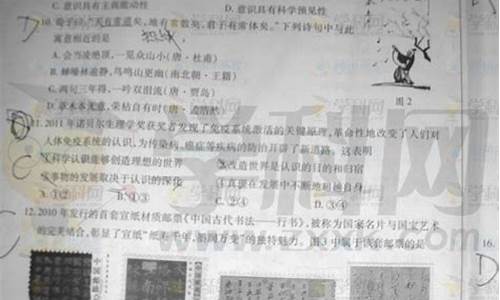 C. 意识具有主观能动性 D. 意识具有科学预见性
D 10. 荀子曰:"天有常道矣,地有常数矣,君子有常体矣。"下列诗句中与此
寓意相近的是
A. 会当凌绝顶,一览众山小(唐·杜甫)
B. 蝉噪林逾静,鸟鸣山更幽(南北朝·王籍)
C. 两句三年得,一吟双泪流(唐·贾岛)
D. 草木本无意,荣枯自有时(唐·孟浩然)
图2
11. 2011年诺贝尔生理学奖获奖者发现了免疫系统激活的关键原理,革命性地改变了人们对
人体免疫系统的认识,为传染病、癌症等疾病的防治开辟了新道路。这表明
C ①科学认识能够创造理想的世界 ②改造世界是认识的目的和归宿
③事物的发展取决于认识的深化 ④真理在发展中不断地超越自身
A. ①② B. ①③ C. ②④ D. ③④
C 12. 2010年发行的首套宣纸材质邮票《中国古代书法——行书》,被称为国家名片与国宝艺术
的完美结合,彰显了宣纸"纸寿千年,墨润万变"的独特魅力。图3中属于该套邮票的是
16.
D
中国邮政
学科网